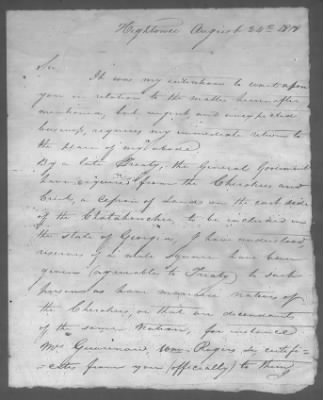 Hightower August 24th 18
Sir,
It was my intention to wait upon
you in relation to the matter hereinafter
mentioned, but urgent and unexpected
business, requires my immediate return to
the place of my abode.
By a late Treaty, the General Goverment
have acquired from the Cherokees and
Creek, a Cession of Lands on the east side
of the Chatahouchee, to be included in
the state of Georgia, I have understood
reserves of a mile Square have been
given (agreeable to Treaty) to such
persons as have married natives of
the Cherokees, or that are descendants
of the same Nation, for instance
Mrs Rogers, by certifi-
-cates from you (officially) to them